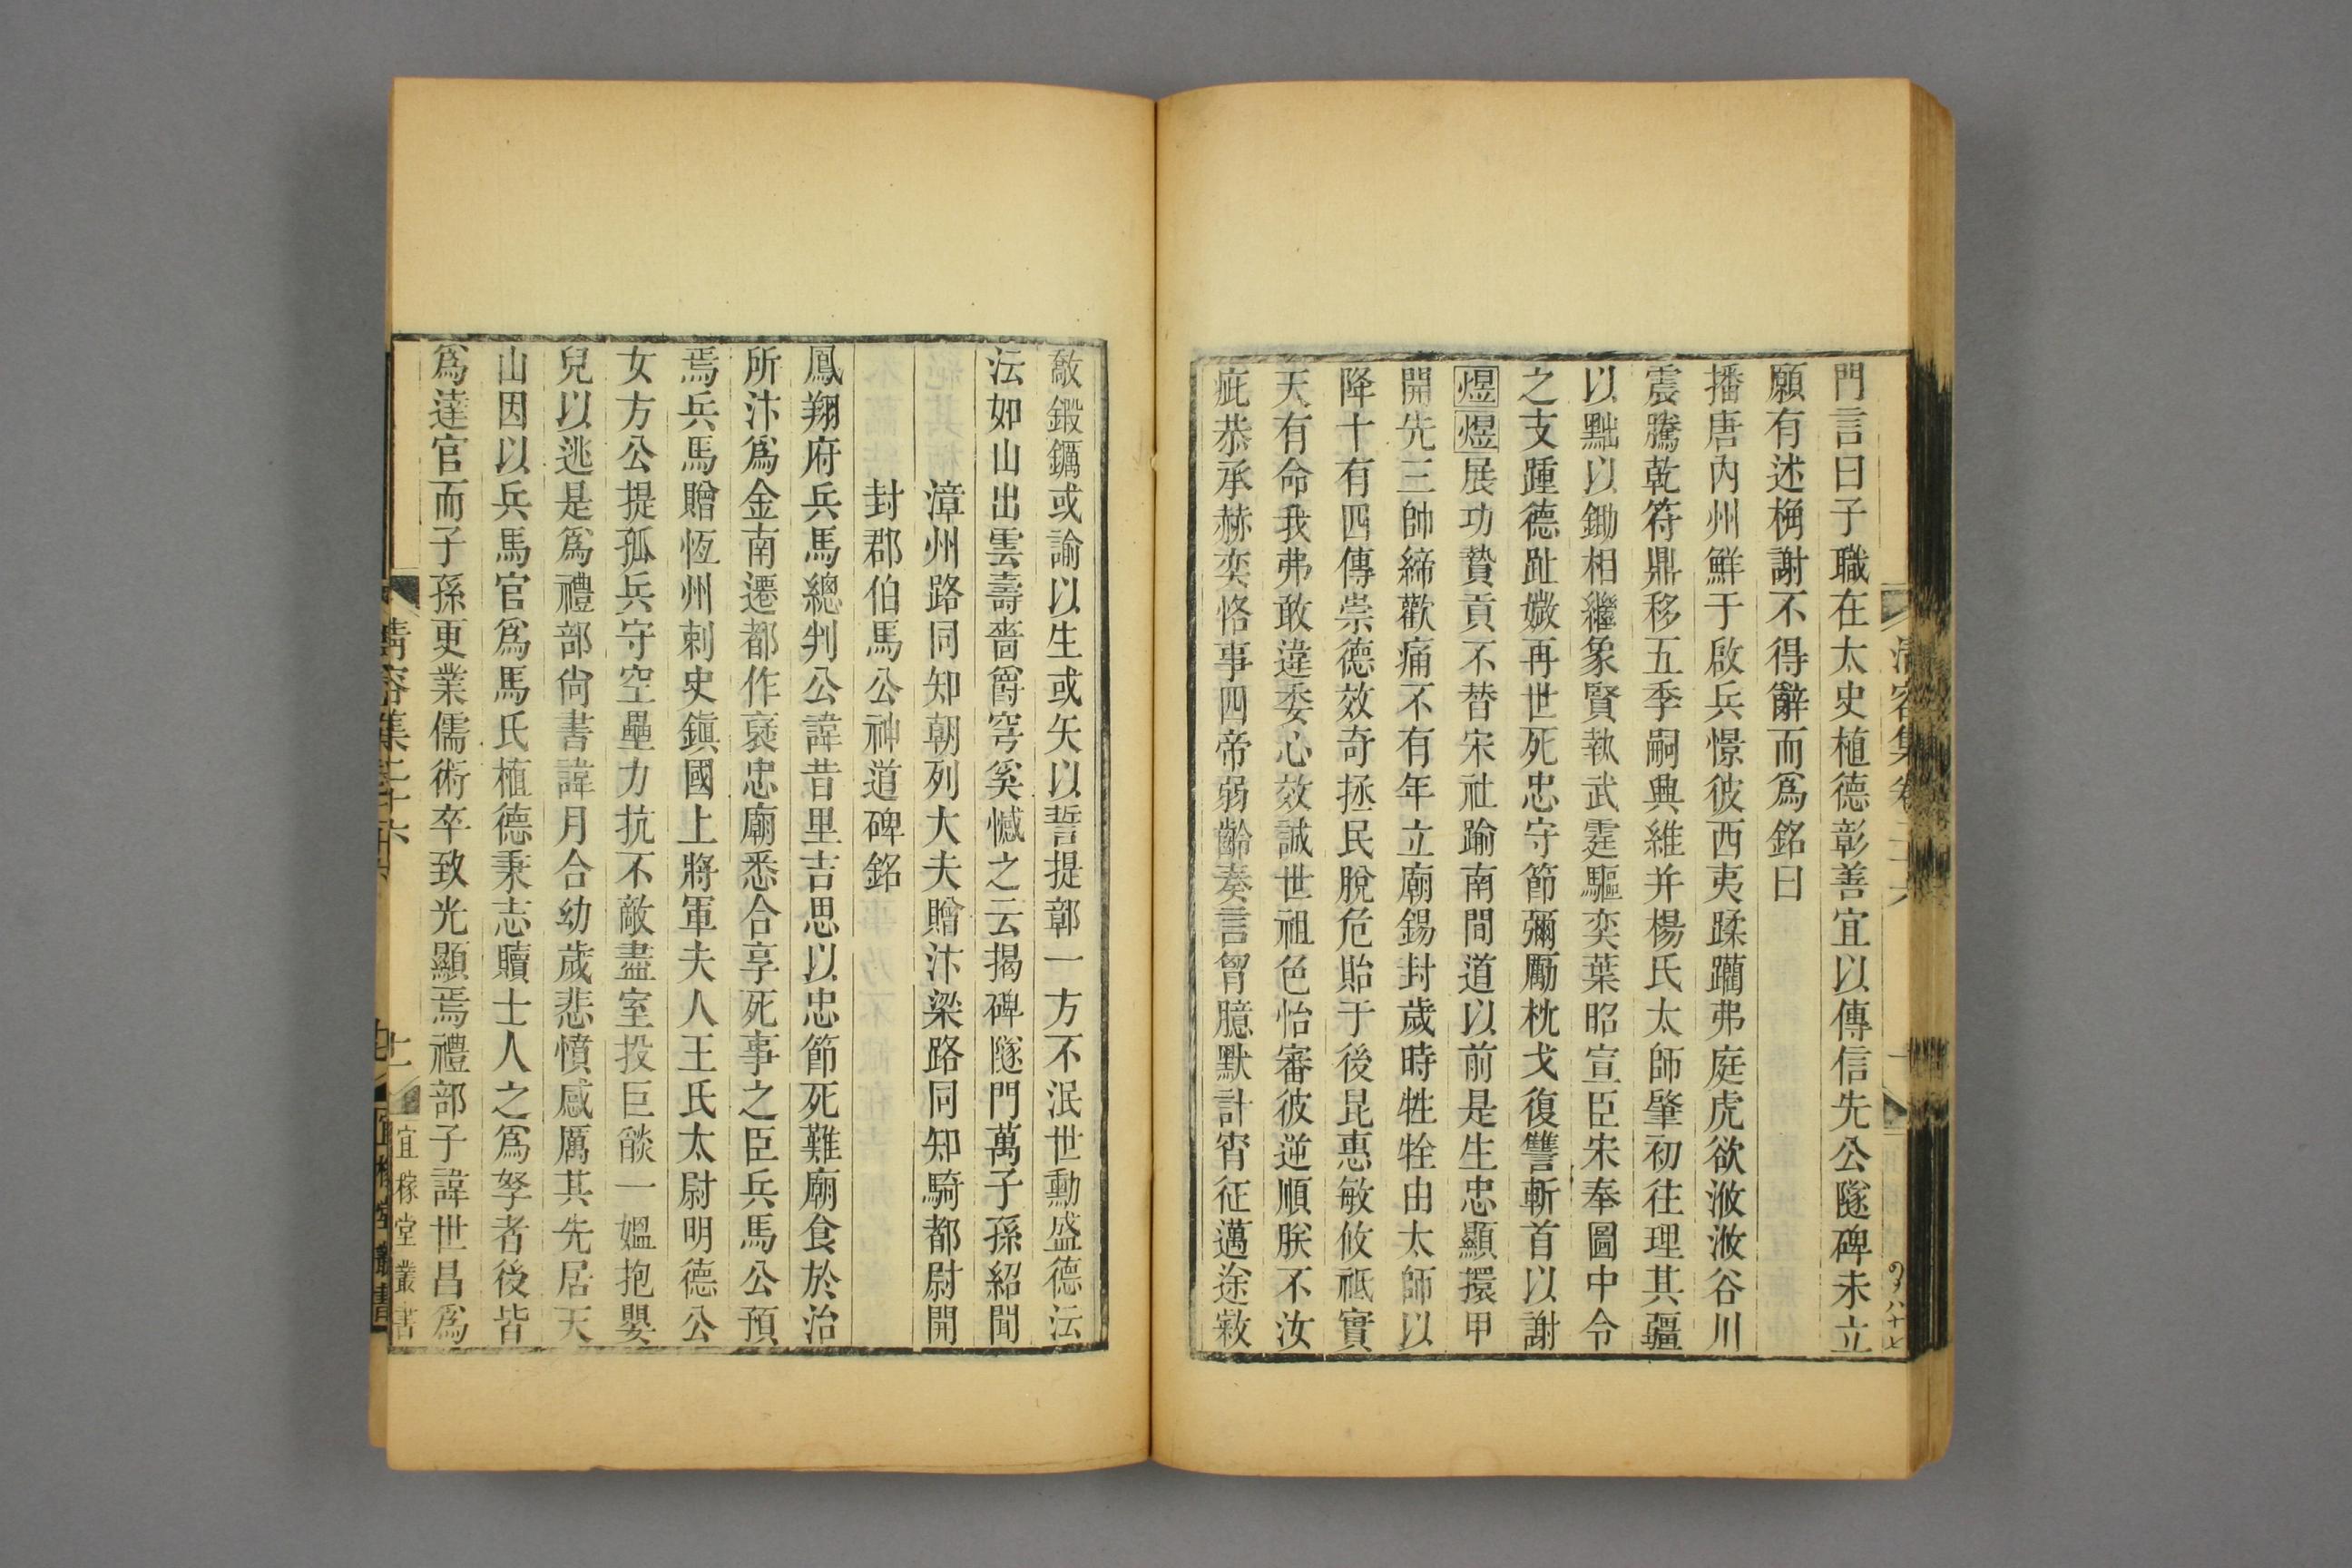 門言曰子職在太史植德彰善宜以傳信先公隧碑未立
願有述桷謝不得辭而爲銘曰
播唐內州鮮于啟兵憬彼西夷蹂躪弗庭虎欲浟浟谷川
震騰乾符鼎移五季嗣興維并楊氏太師肇初往理其疆
以黜以鋤相繼象賢執武霆驅奕葉昭宣臣宋奉圖中令
之支踵德趾媺再世死忠守節彌勵枕戈復讐斬首以謝
煜煜展功贄貢不替宋社踰南間道以前是生忠顯擐甲
開先三帥締歡痛不有年立廟錫封歲時牲牷由太師以
降十有四傳崇德效奇拯民脫危貽于後昆惠敏攸祗實
天有命我弗敢違委心效誠世祖色怡審彼逆順朕不汝
疵恭承赫奕恪事四帝弱齡奏言智臆默計宵征邁途敹
敽鍛鐊或諭以生或矢以誓提鄣一方不泯世勳盛德沄
沄如山出雲壽嗇爵穹奚憾之云揭碑隧門萬子孫紹聞
漳州路同知朝列大夫贈汴梁路同知騎都尉開
封郡伯馬公神道碑銘
鳳翔府兵馬總判公諱昔里吉思以忠節死難廟食於治
所汴爲金南遷都作褒忠廟悉合享死事之臣兵馬公預
焉兵馬贈恆州刺史鎭國上將軍夫人王氏太尉明德公
女方公提孤兵守空壘力抗不敵盡室投巨燄一媼抱嬰
兒以逃是爲禮部尙書諱月合幼歲悲憤感厲其先居天
山因以兵馬官爲馬氏植德秉志贖士人之爲孥者後皆
爲達官而子孫更業儒術卒致光顯焉禮部子諱世昌爲
清容集
宜稼堂叢書